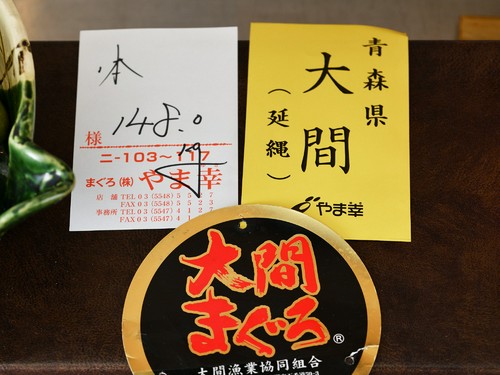 本
148.0
kg
様
ニ-103~117
まぐろ(株) やま幸
店舗 TEL 03 (5548)
FAX 03 (5548)
事務所 TEL 03 (5547)
FAX 03 (5547)
青森県
大間
(延縄)
やま幸
大間
まぐろ®
大間漁業協同組合